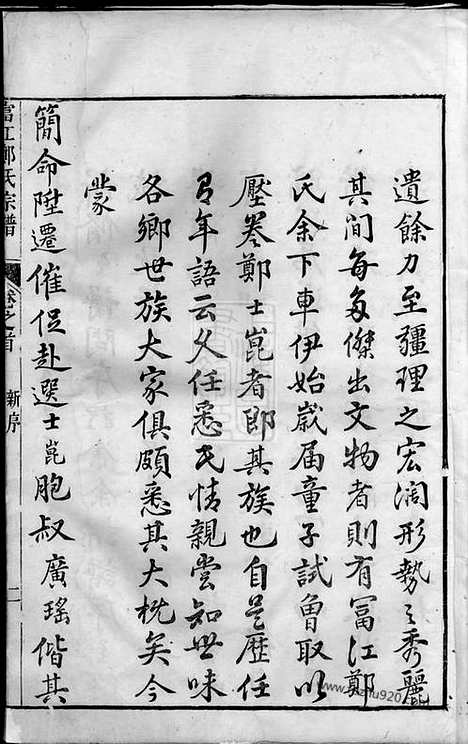 遺餘力至疆理之宏濶形勢之秀麗
其間每多傑出文物者則有富江鄭
氏余下車伊始歲届童子試曾取以
壓卷鄭士崑者即其族也自是歷任
多年語云久任悉民情親嘗知世味
各鄉世族大家俱頗悉其大概矣今
蒙
簡命陞遷催促赴選士崑胞叔廣瑤偕其
富江鄭氏宗譜 卷之首 新序 二